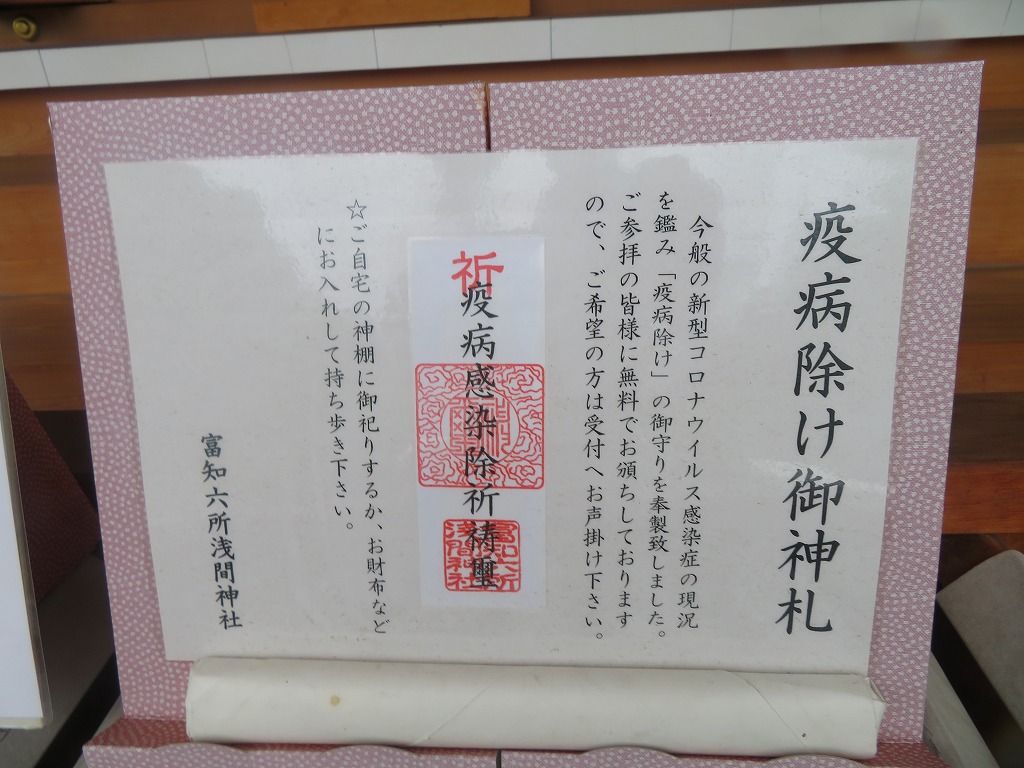 疫病除け御神札
今般の新型コロナウイルス感染症の現況
を鑑み「疫病除け」の御守りを奉製致しました。
ご参拝の皆様に無料でお頒ちしております
ので、ご希望の方は受付へお声掛け下さい。
祈
疫病感染除祈祷璽
☆ご自宅の神棚に御祀りするか、お財布など
にお入れして持ち歩き下さい。
富知六所浅間神社